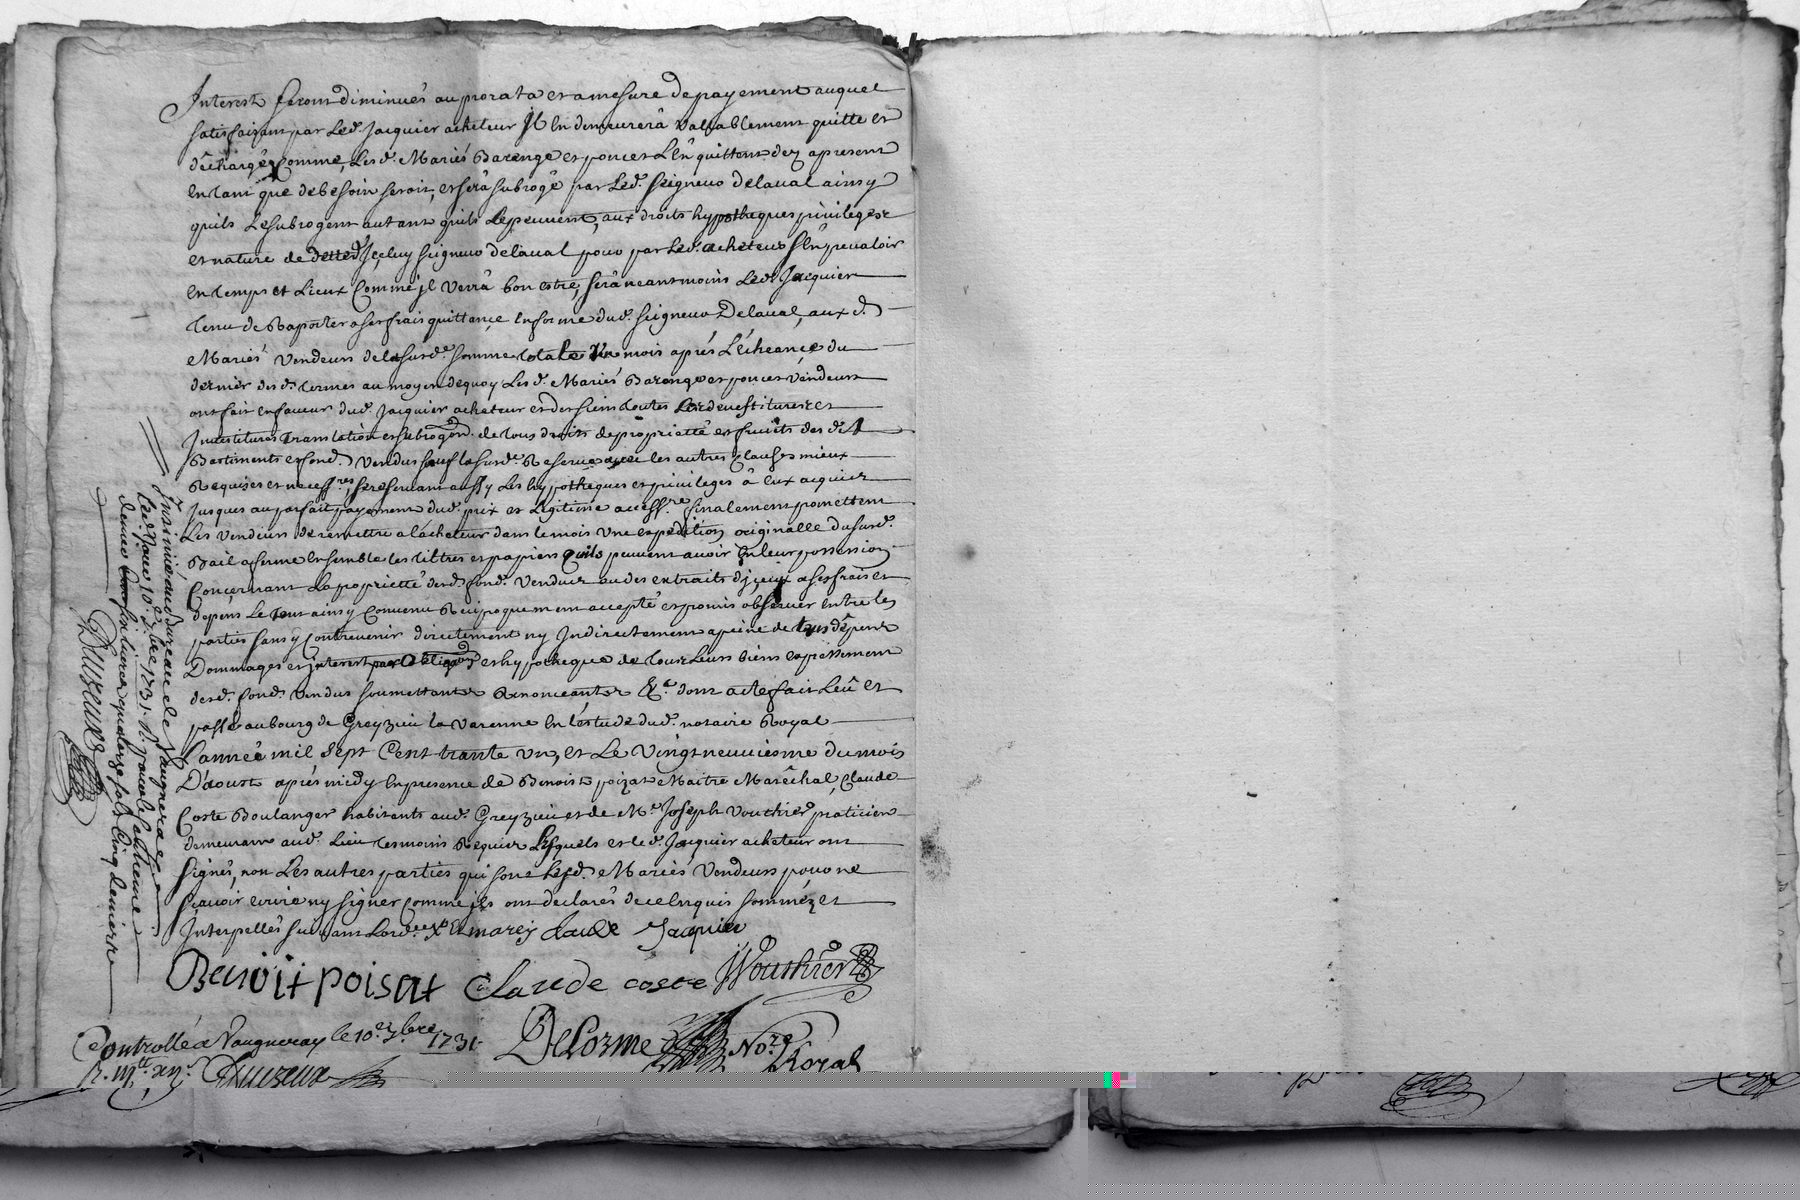 Interest seront diminués au prorata et a mesure de payement auquel
satisfaisant par Led. Jacquier acheteur Il En demeurerà Vallablement quitte et
dêchargé comme, Lesd. Mariés Barange et poncet L'En quittent dez apresent
en tant que de besoin seroit, et serà subrogé par Led. seigneur delaval ainsy
quils Le subrogent autant quils Le peuvent, aux droits hypotheques privileges et
et nature de dettes d'Iceluy seigneur delaval pour par Led. acheteur s'En prevaloir
en temps et Lieux comme jl Verrà bon estre, serà neantmoins Led. Jacquier
tenu de Raporter a ses frais quittance en forme dud. seigneur Delaval, aux d.
Mariés Vendeurs de la susd.e somme totale Un mois aprés L'écheance du
dernier desd. termes au moyen dequoy Lesd. Mariés Barange et poncet vendeurs
ont fait en faveur dud. Jacquier acheteur et des siens toutes Les devestitures et
Investitures translation et subrogaōn de tous droits de proprietté et fruits des d.
Bastiments et fond. Vendus sauf la susd. Reserve avec les autres clauses mieux
Requises et necess.res se reservant aussy Les hypotheques et privileges à Eux acquis
jusques au parfait payement dud. prix et Legitime access.re finalement promettent
Les Vendeurs de remettre a l'acheteur dans le mois Une expedition originalle du susd.
Bail a ferme Ensemble les tiltres et papiers quils peuvent avoir En leur possession
Concernant la proprietté desd. fond. Vendus ou des extraits d'jceux a ses frais et
depens Le tout ainsy convenu Reciproquement accepté et promis observer entre les
parties sans y contrevenir directement ny Indirectement a peine de tous dépens
Dommages et interest par obligaōn et hypotheque de tous Leurs biens expressement
desd. fond. Vendus soumettants Renonceants &.a dont acte fait Leû et
passé au bourg de Greyzieu la Varenne En l'estude dud. notaire Royal
L'année mil sept Cent trante Un, et Le Vingt neuviesme du mois
D'aoust aprés midy En presence de Benoist poizat Maitre Maréchal, Claude
Coste Boulanger habitants aud. Greyzieu et de M.e Joseph Vouthier praticien
demeurant aud. Lieu tesmoins Requis Lesquels et led. Jacquier acheteur ont
signés, non Les autres parties qui sont Lesd. Mariés Vendeurs pour ne
sçavoir ecrire ny signer comme jls ont declarés de ce Enquis sommés et
Interpellés suivant Lord.ce claude Jacquier
Benoit poisat claude coste JVouthier
DeLorme No.re Royal
Controllé a Vaugneray le 10.e 7bre 1731
Duiseux
Insinué au bureau de Vaugneray
Led. jour 10.e 7bre 1731.
Duiseux